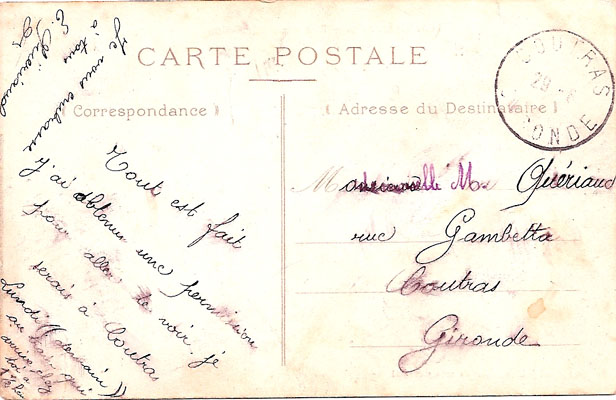 CARTE POSTALE
Correspondance
Adresse du Destinataire
COUTRAS
29
GIRONDE
Tout est fait
j'ai obtenu une permission
pour aller te voir. je
serais à Coutras
Lundi (demain)
au train qui
arrive chez
toi à
Je vous embrasse
à tous
E. Guériaud
Mademoiselle M. Guériaud
rue Gambetta
Coutras
Gironde